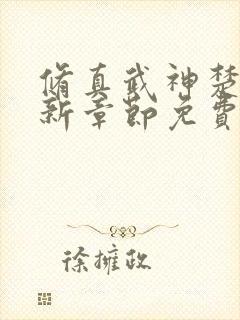 脩真武神楚
新章節免費
徐擁政